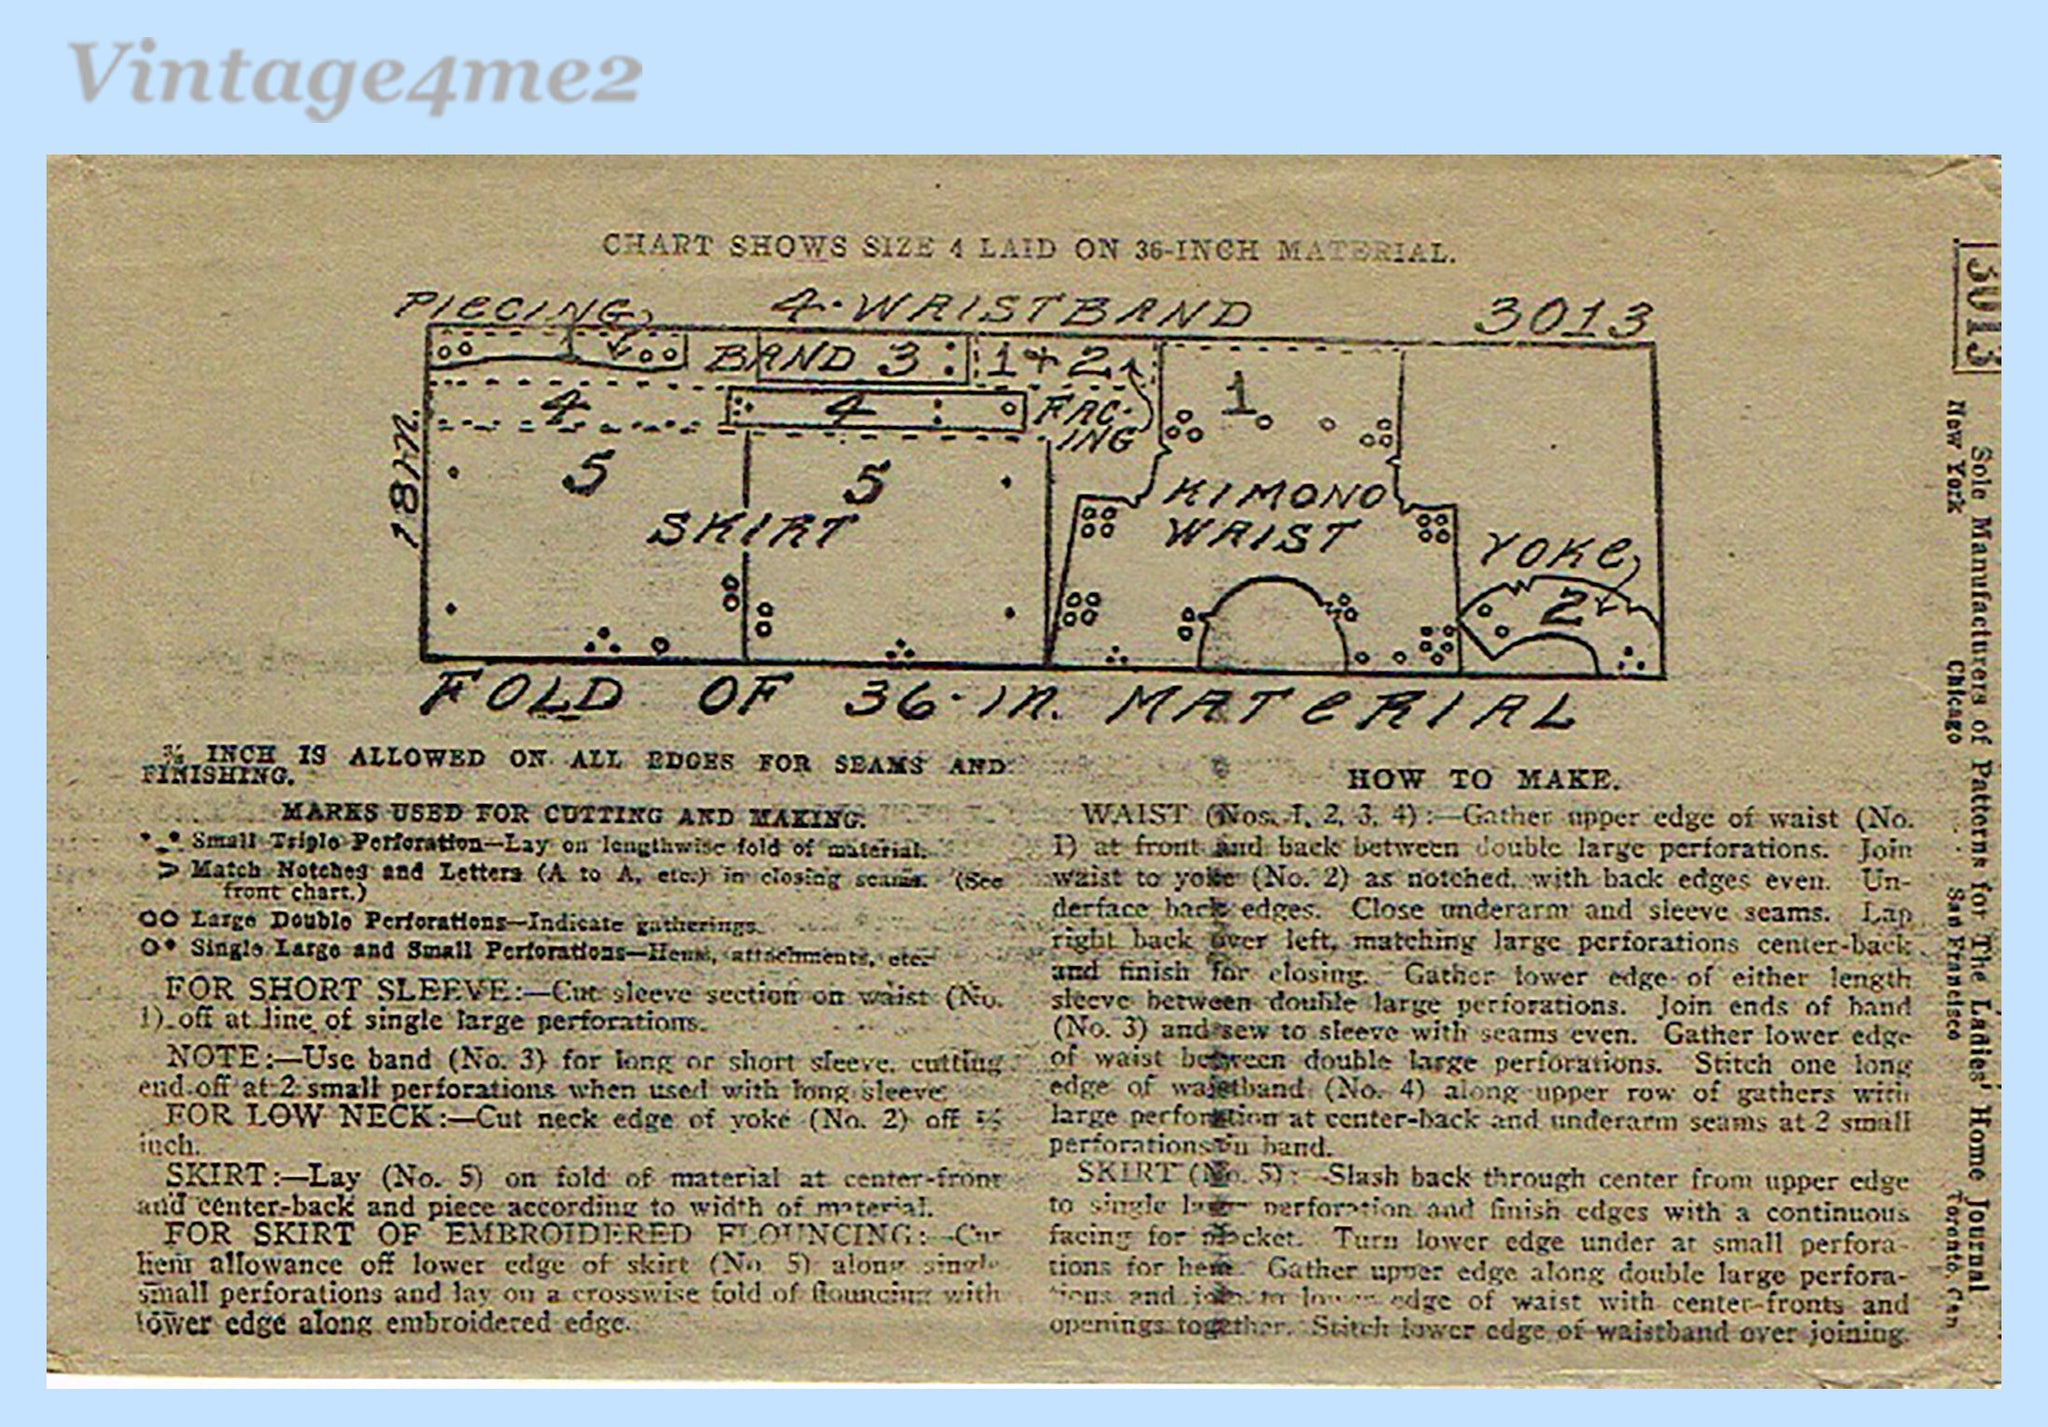 Vintage4me2
CHART SHOWS SIZE 4 LAID ON 36-INCH MATERIAL.
PIECING 4-WAISTBAND 3013
BAND 3 1+2
4 4 FAC-
ING
1
18 IN.
5 5
SKIRT
KIMONO
WAIST
YOKE
2
FOLD OF 36-IN. MATERIAL
INCH IS ALLOWED ON ALL EDGES FOR SEAMS AND
FINISHING.
MARKS USED FOR CUTTING AND MAKING.
Small Triple Perforation—Lay on lengthwise fold of material.
> Match Notches and Letters (A to A, etc.) in closing seams. (See
front chart.)
OO Large Double Perforations—Indicate gatherings.
O• Single Large and Small Perforations—Hems, attachments, etc.
FOR SHORT SLEEVE:—Cut sleeve section on waist (No.
1) off at line of single large perforations.
NOTE:—Use band (No. 3) for long or short sleeve, cutting
end off at 2 small perforations when used with long sleeve.
FOR LOW NECK:—Cut neck edge of yoke (No. 2) off
inch.
SKIRT:—Lay (No. 5) on fold of material at center-front
and center-back and piece according to width of material.
FOR SKIRT OF EMBROIDERED FLOUNCING:—Cut
hem allowance off lower edge of skirt (No. 5) along single
small perforations and lay on a crosswise fold of flouncing with
lower edge along embroidered edge.
HOW TO MAKE.
WAIST (Nos. 1, 2, 3, 4):—Gather upper edge of waist (No.
1) at front and back between double large perforations. Join
waist to yoke (No. 2) as notched, with back edges even. Un-
derface back edges. Close underarm and sleeve seams. Lap
right back over left, matching large perforations center-back
and finish for closing. Gather lower edge of either length
sleeve between double large perforations. Join ends of band
(No. 3) and sew to sleeve with seams even. Gather lower edge
of waist between double large perforations. Stitch one long
edge of waistband (No. 4) along upper row of gathers with
large perforation at center-back and underarm seams at 2 small
perforations in band.
SKIRT (No. 5):—Slash back through center from upper edge
to single large perforation and finish edges with a continuous
facing for placket. Turn lower edge under at small perfora-
tions for hem. Gather upper edge along double large perfora-
tions and join to lower edge of waist with center-fronts and
openings together. Stitch lower edge of waistband over joining.
3013
Sole Manufacturers of Patterns for The Ladies' Home Journal
New York Chicago San Francisco Toronto, Can